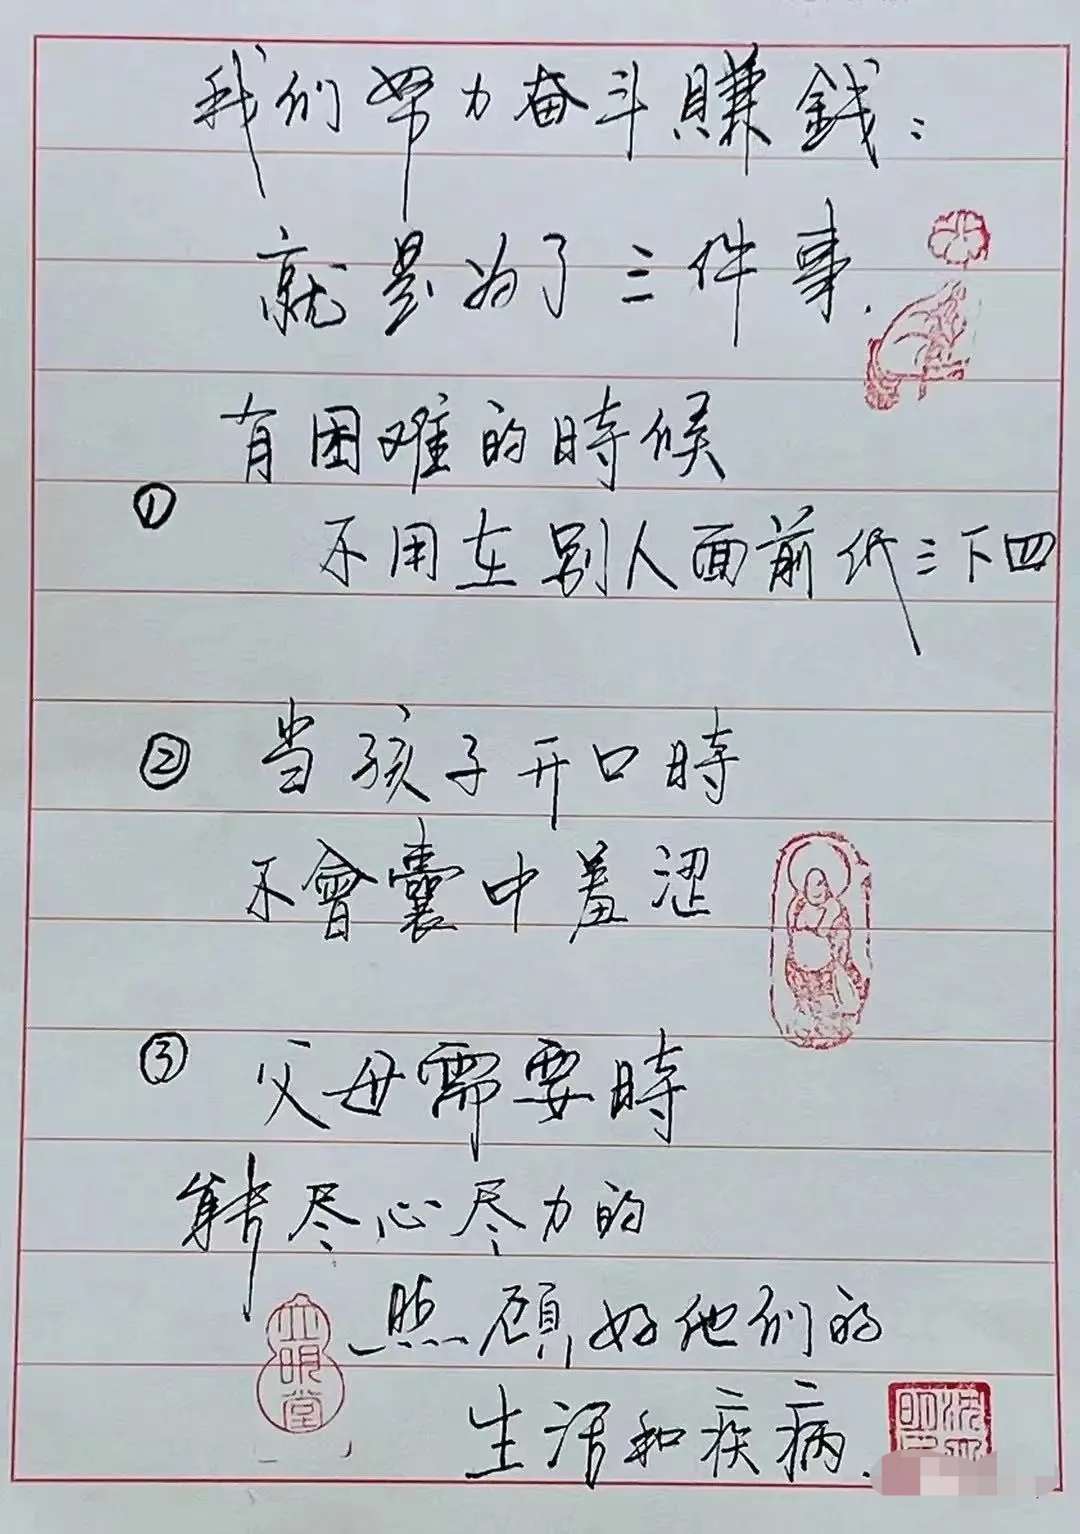 我们努力奋斗賺錢：
就是为了三件事.
有困难的時候
①
不用在别人面前低三下四
② 当孩子开口時
不會囊中羞涩
③ 父母需要時
能尽心尽力的
照顾好他们的
生活和疾病.
明堂